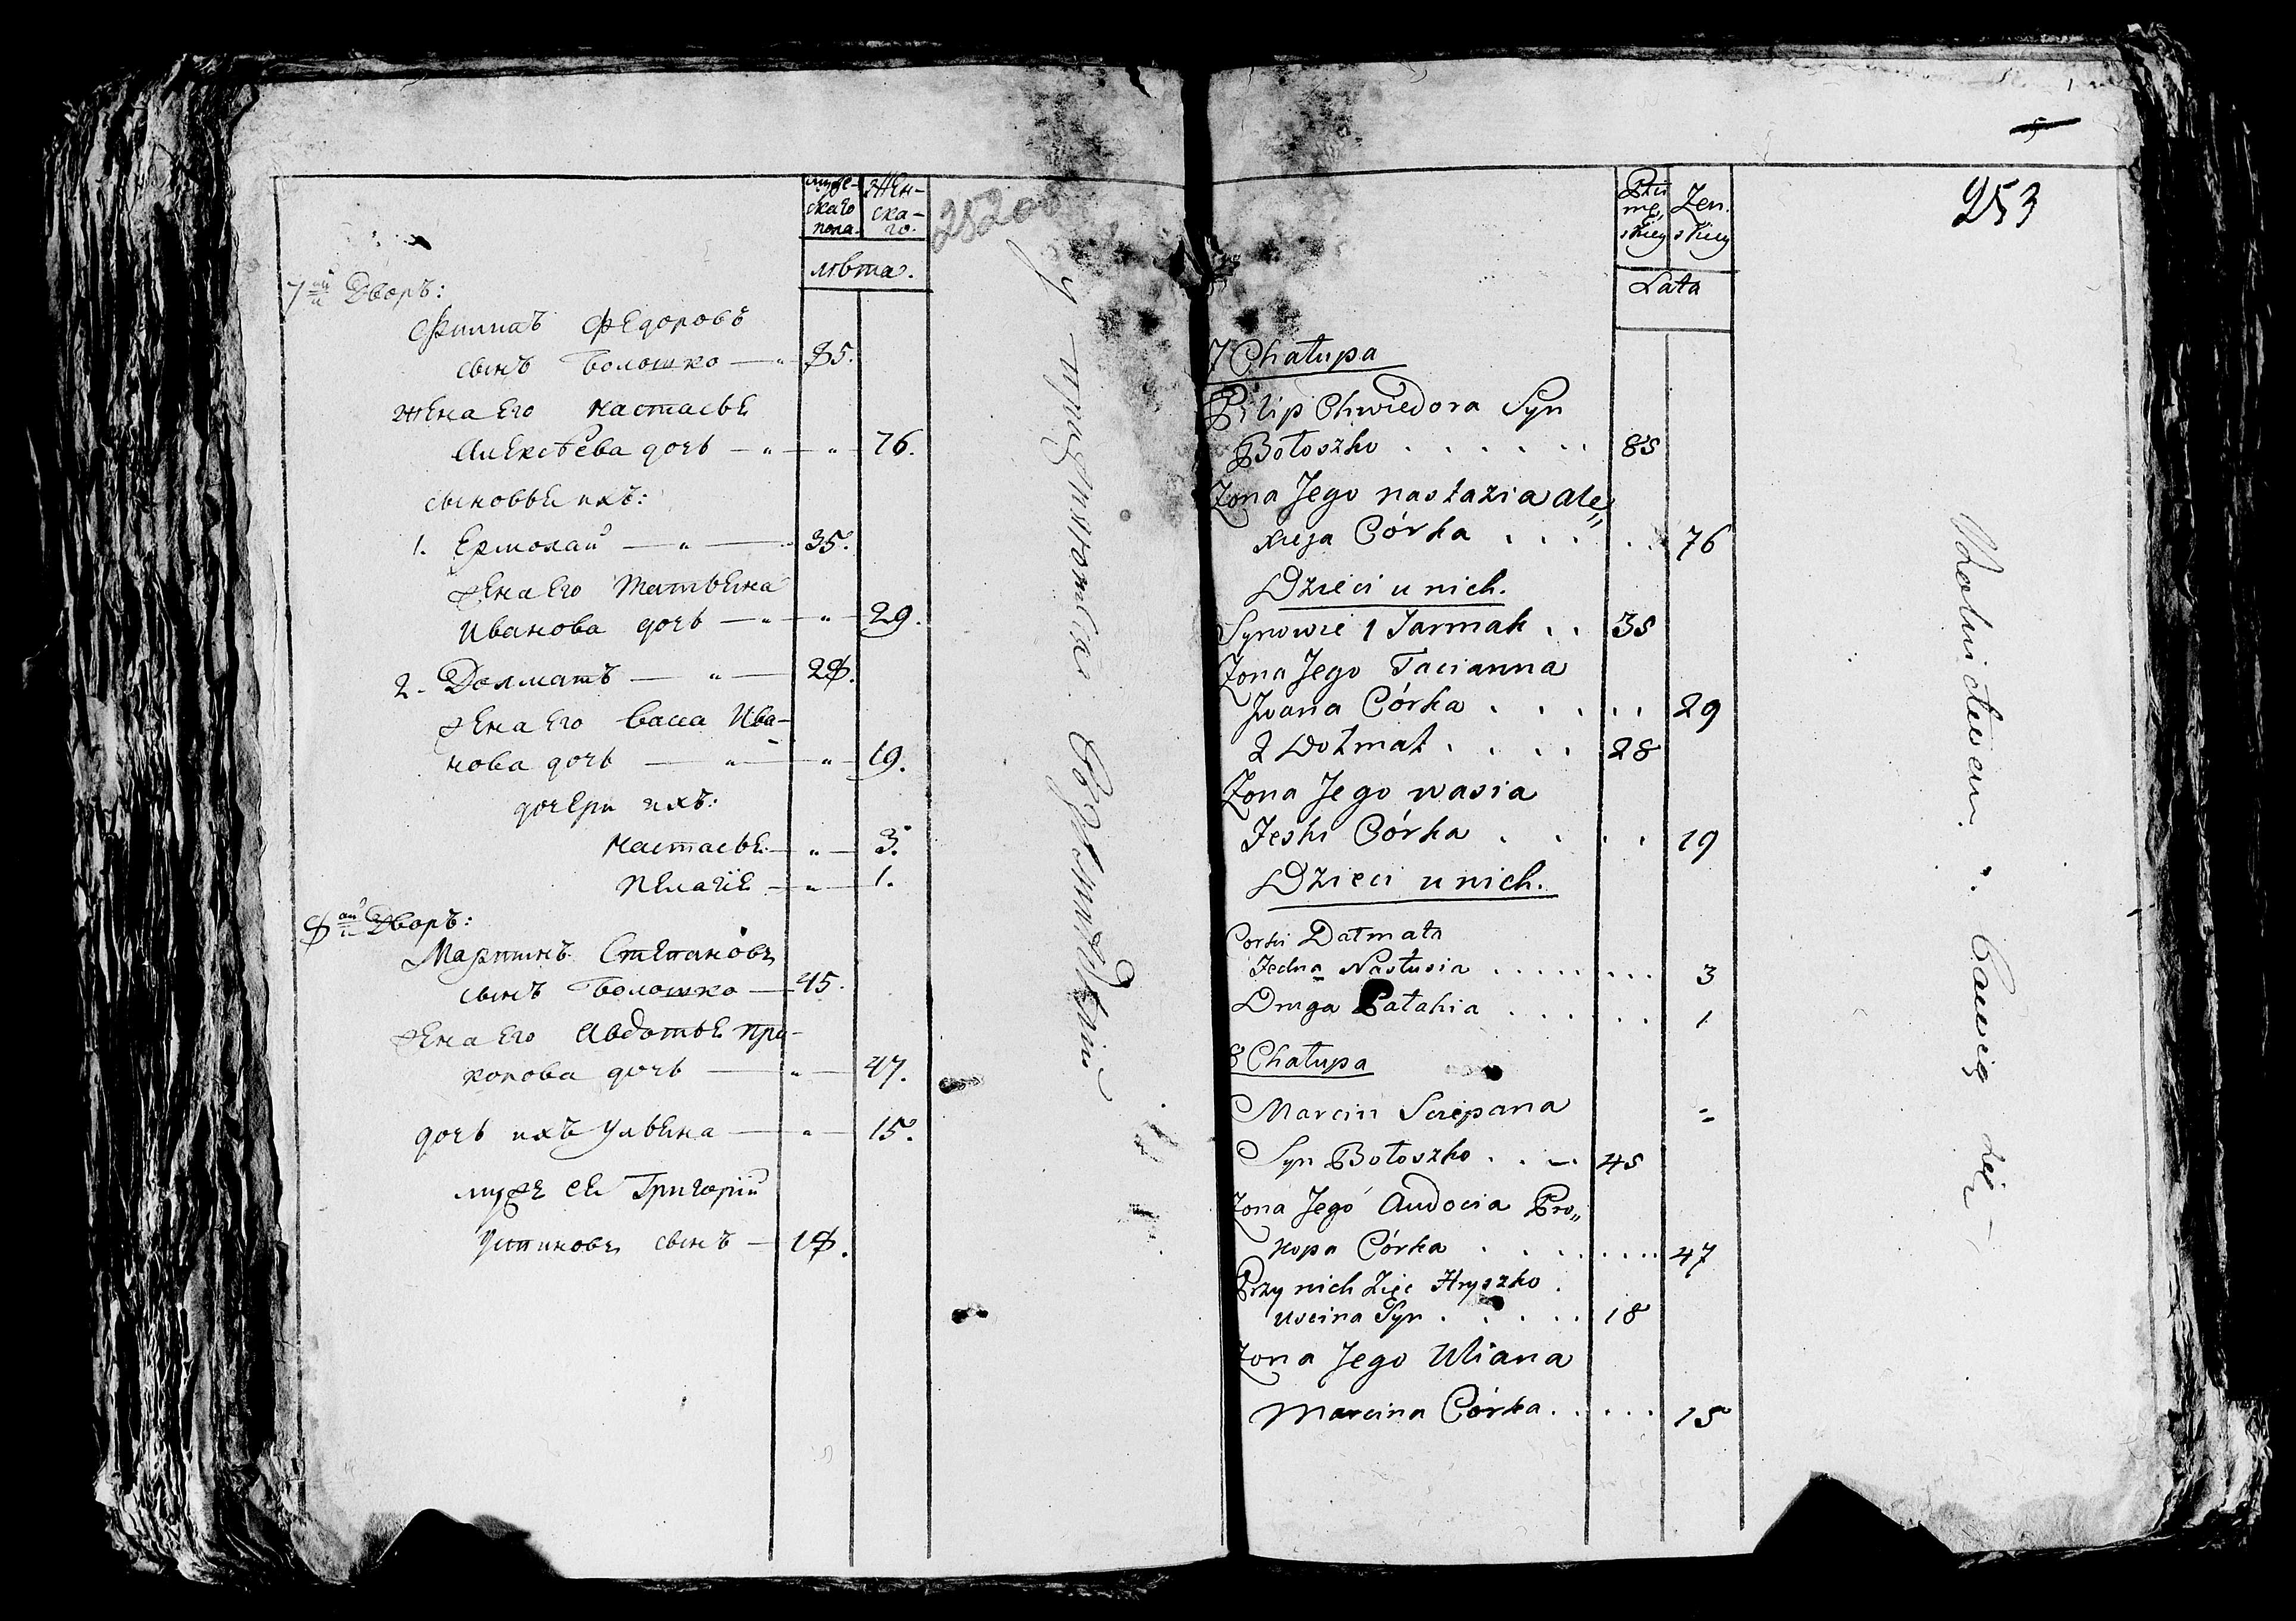 мужe-
скаго
пола.
Жен-
ска-
го.
лѣта.
252об
7ой Дворъ:
Филипъ Федоровъ
сынъ Болошко — " 85.
Жена Его Настасье
Алексѣева дочь — " — " 76.
сыновьи ихъ:
1. Ермолай — " — 35.
жена Его Татьена
Иванова дочь — " — " 29.
2. Долматъ — " — 28.
жена Его Васса Ива-
нова дочь — " — " 19.
дочери ихъ:
Настасье — " — 3.
Пелагіе — " — 1.
8ой Дворъ:
Мартинъ Степановъ
сынъ Болошко — 45.
жена Его Авдотье Про-
копова дочь — " — 47.
дочь ихъ Ульена — " — 15.
мужъ Ея Григорій
Устиновъ сынъ — 18.
253
Płci
mę,
skiey
Zen.
skiey
Lata
7 Chałupa
Pilip Chwiedora Syn
Bołoszko . . . . . . 85
Zona Jego nastazia ale„
xieja Córka . . . . . 76
Dzieci u nich.
Synowie 1 Jarmak . . 35
Zona Jego Tacianna
Jwana Córka . . . . . . 29
2 Dołmat . . . . 28
Zona Jego wasia
Jeski Córka . . . . 19
Dzieci u nich.
Corki Datmata
Jedna Nastusia . . . . . . . . 3
Druga Pałahia . . . . . . 1
8 Chałupa
Marcin Sciepana
Syn Bołoszko . . – . 45
Zona Jego Audocia Pro„
kopa Córka . . . . . . . . 47
Przy nich Zięc Hryszko .
uscina Syn . . . . . 18
Zona Jego Uliana
Marcina Córka . . . . . 15